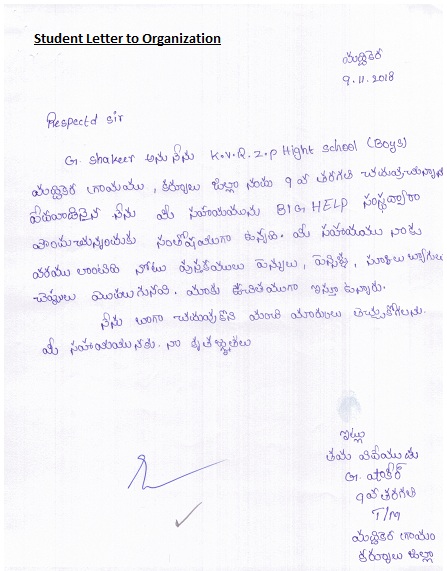 Student Letter to Organization
మద్దికెర
9.11.2018
Respectd sir
G. Shakeer అను నేను K.V.R. Z.P Hight School (Boys)
మద్దికెర గ్రామము, కర్నూలు జిల్లా నందు 9 వ తరగతి చదువుచున్నాను
పేదవాడినైన నేను మీ సహాయమును BIG HELP సంస్థద్వారా
పొందుచున్నందుకు సంతోషముగా ఉన్నది. మీ సహాయము నాకు
వరము లాంటిది నోటు పుస్తకములు పెన్నులు, పెన్సిల్స్, స్కూలు బ్యాగులు
చెప్పులు మొదలుగునవి. మాకు ఉచితముగా ఇస్తూ ఉన్నారు.
నేను బాగా చదువుకొని మంచి మార్కులు తెచ్చుకోగలను.
మీ సహాయమునకు. నా కృతజ్ఞతలు
ఇట్లు
తమ విధేయుడు
G. షాకీర్
9వ తరగతి
T/M
మద్దికెర గ్రామం
కర్నూలు జిల్లా